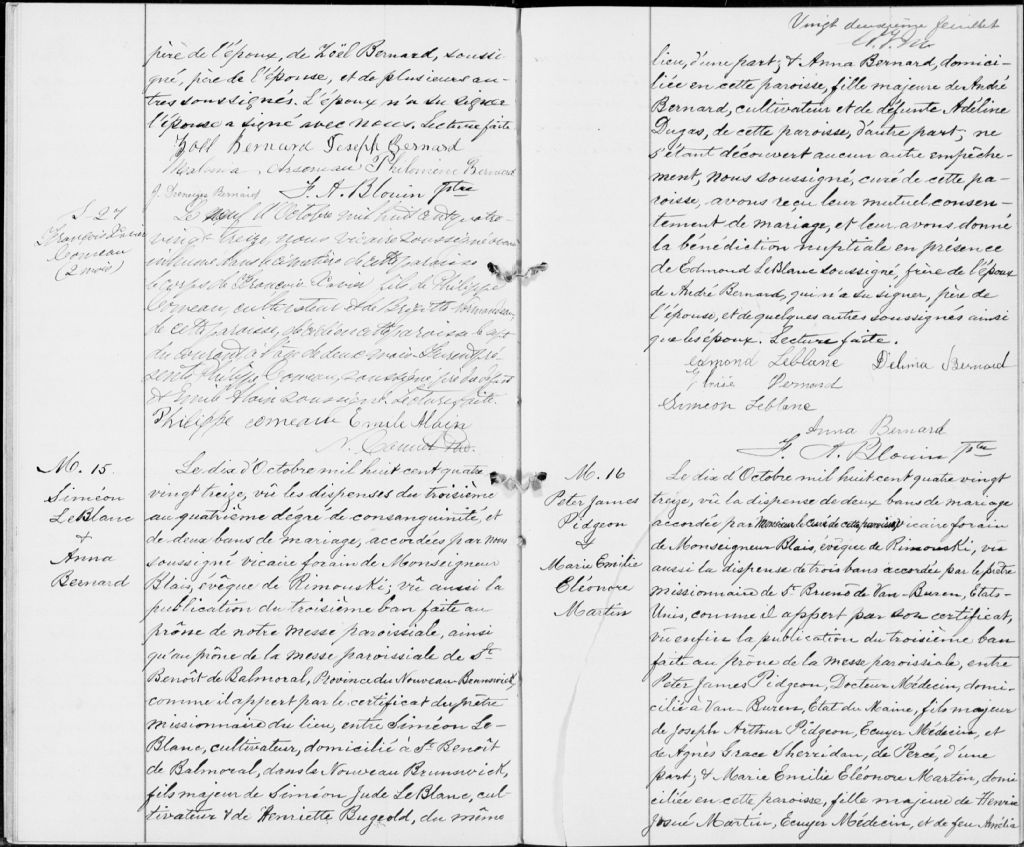 père de l'époux, de Zoël Bernard, soussi-
gné, père de l'épouse, et de plusieurs au-
tres soussignés. L'époux n'a su signer
l'épouse a signé avec nous. Lecture faite
Zoël Bernard Joseph Bernard
Arseneau Philomène Bernard
J. Bernard F. A. Blouin Ptre
S. 27
François Xavier
Comeau
(2 mois)
Le neuf d'Octobre mil huit cent quatre-
vingt treize nous vicaire soussigné avons
inhumé dans le cimetière de cette paroisse
le corps de François Xavier fils de Philippe
Comeau, cultivateur et de
de cette paroisse, décédé en cette paroisse le sept
du courant à l'âge de deux mois. Furent pré-
sents Philippe Comeau, soussigné père du défunt
& Emile Alain soussigné. Lecture faite.
Philippe comeau Emile Alain
M. 15.
Siméon
LeBlanc
&
Anna
Bernard
Le dix d'Octobre mil huit cent quatre
vingt treize, vû les dispenses du troisième
au quatrième dégré de consanguinité, et
de deux bans de mariage, accordées par nous
soussigné vicaire forain de Monseigneur
Blais, évêque de Rimouski; vû aussi la
publication du troisième ban faite au
prône de notre messe paroissiale, ainsi
qu'au prône de la messe paroissiale de St
Benoît de Balmoral, Province du Nouveau-Brunswick,
comme il appert par le certificat du prêtre
missionnaire du lieu, entre Siméon Le-
Blanc, cultivateur, domicilié à St Benoît
de Balmoral, dans le Nouveau Brunswick,
fils majeur de Siméon Jude LeBlanc, cul-
tivateur & de Henriette Bugeold, du même
Vingt deuxième feuillet
lieu, d'une part; & Anna Bernard, domici-
liée en cette paroisse, fille majeure de André
Bernard, cultivateur et de défunte Adéline
Dugas, de cette paroisse, d'autre part; ne
s'étant découvert aucun autre empêche-
ment, Nous soussigné, curé de cette pa-
roisse, avons reçu leur mutuel consen-
tement de mariage, et leur avons donné
la bénédiction nuptiale en présence
de Edmond LeBlanc soussigné, frère de l'époux
de André Bernard, qui n'a su signer, père de
l'épouse, et de quelques autres soussignés ainsi
que les époux. Lecture faite.
Edmond Leblanc Délima Bernard
Bernard
Simeon Leblanc
Anna Bernard
F. A. Blouin Ptre
M. 16
Peter James
Pidgeon
&
Marie Emilie
Eléonore
Martin
Le dix d'Octobre mil huit cent quatre vingt
treize, vû la dispense de deux bans de mariage
accordée par Monsieur le Curé de cette paroisse, vicaire forain
de Monseigneur Blais, évêque de Rimouski, vû
aussi la dispense de trois bans accordée par le prêtre
missionnaire de St Bruno de Van-Buren, Etats-
Unis, comme il appert par son certificat,
vû enfin la publication du troisième ban
faite au prône de la messe paroissiale, entre
Peter James Pidgeon, Docteur Médecin, domi-
cilié à Van-Buren, Etat du Maine, fils majeur
de Joseph Arthur Pidgeon, Ecuyer Médecin, et
de Agnès Grace Sherridan, de Percé, d'une
part; & Marie Emilie Eléonore Martin, domi
ciliée en cette paroisse, fille majeure de Henri
Josué Martin, Ecuyer Médecin, et de feu Amélia